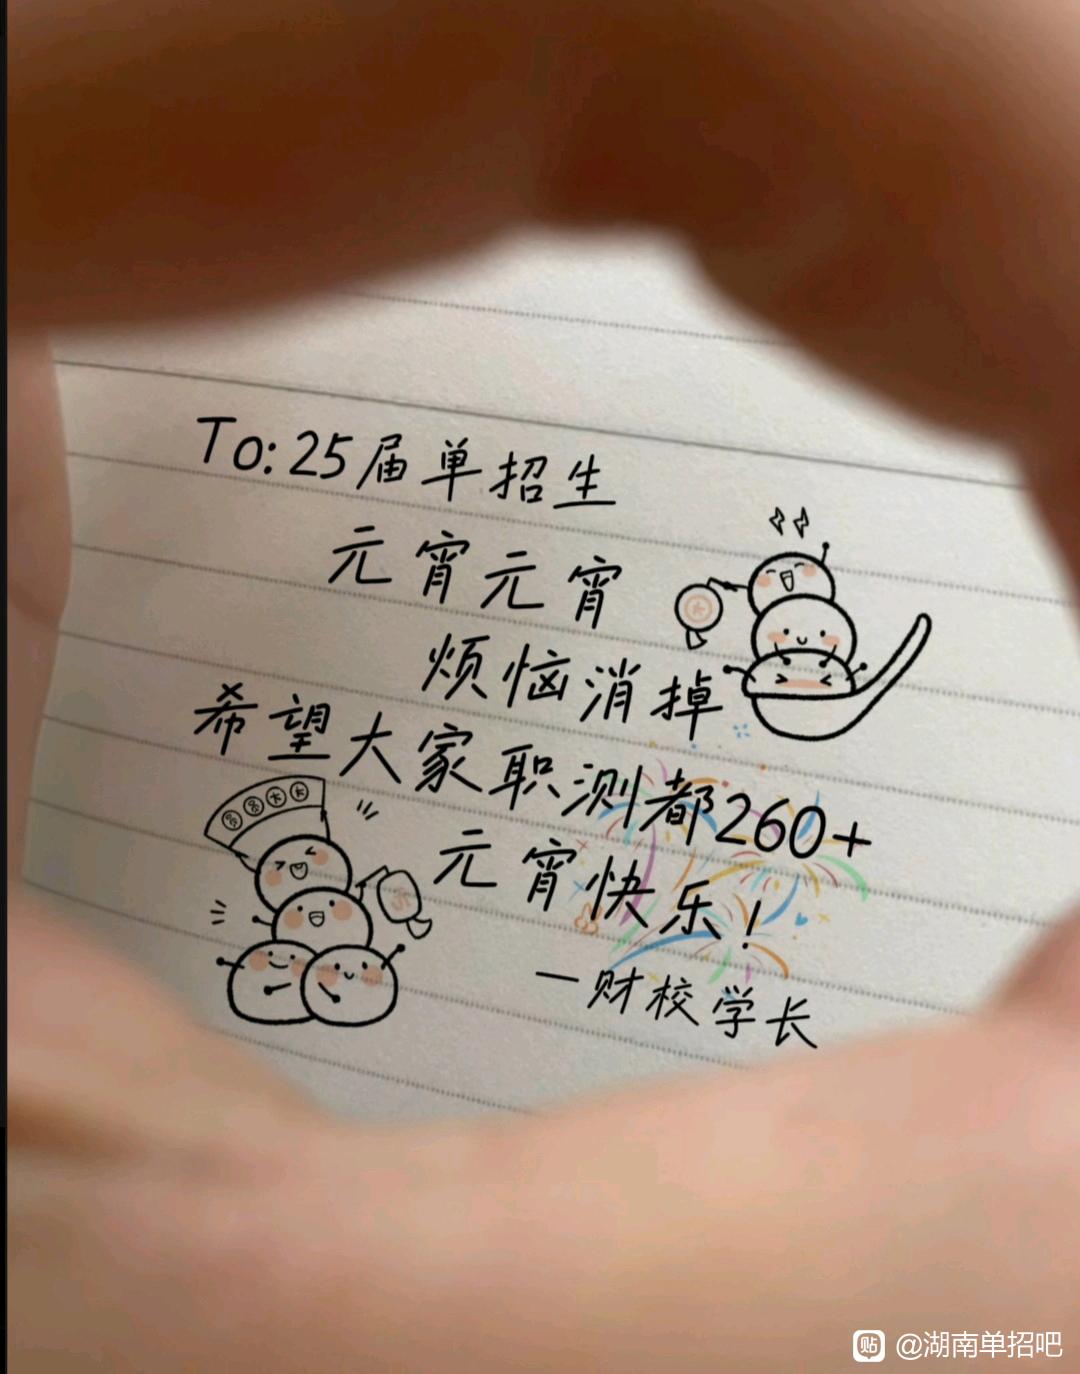 To:25届单招生
元宵元宵
烦恼消掉
希望大家职测都260+
元宵快乐！
一财校学长
贴 @湖南单招吧